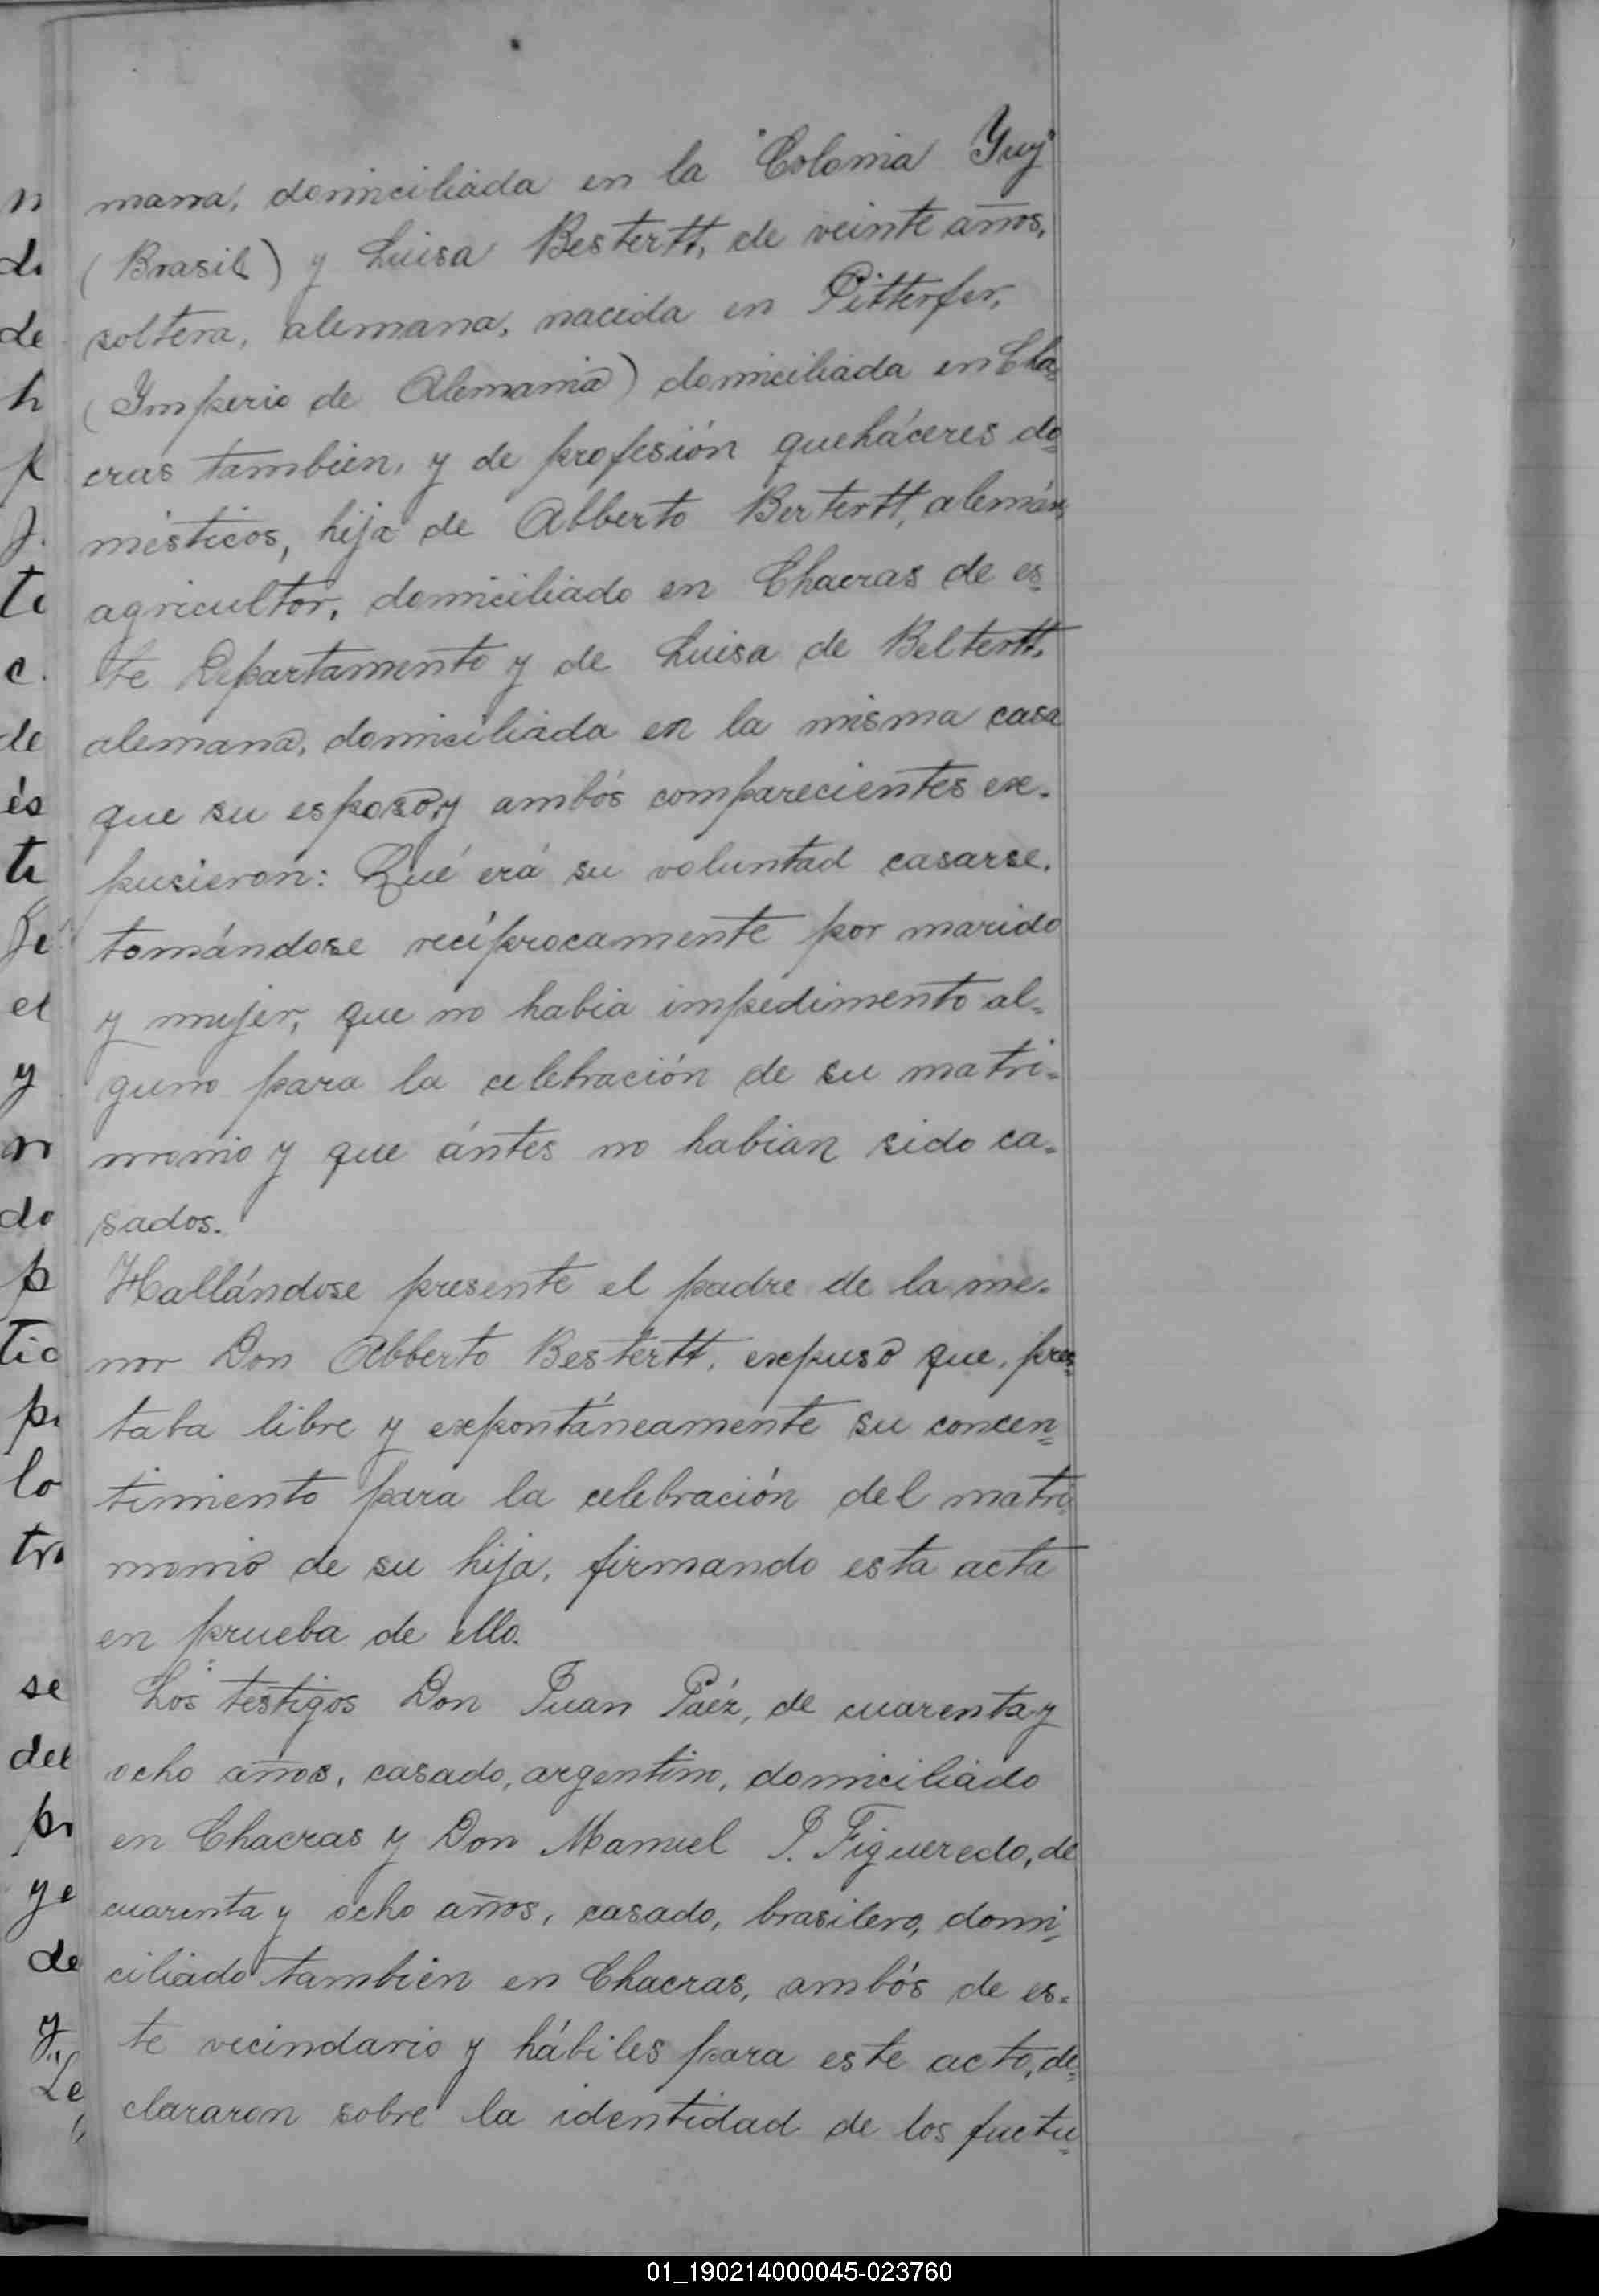 mana, domiciliada en la "Colonia Yuy"
(Brasil) y Luisa Bestertt, de veinte años,
soltera, alemana, nacida en Pitterfer,
(Imperio de Alemania) domiciliada en Cha=
cras tambien, y de profesión queháceres do=
mésticos, hija de Alberto Bertertt, alemán,
agricultor, domiciliado en Chacras de es=
te Departamento y de Luisa de Beltertt,
alemana, domiciliada en la misma casa
que su esposo, y ambós comparecientes ex-
pusieron: Qué erá su voluntad casarse,
tomándose recíprocamente por marido
y mujer, que no habia impedimento al=
guno para la celebración de su matri=
monio y que ántes no habian sido ca=
sados.
Hallándose presente el padre de la me-
nor Don Alberto Bestertt, expuso que, pres=
taba libre y expontáneamente su concen=
timiento para la celebración del matri=
monio de su hija, firmando esta acta
en prueba de ello.
Los testigos Don Juan Paéz, de cuarenta y
ocho años, casado, argentino, domiciliado
en Chacras y Don Manuel J. Figueredo, de
cuarenta y ocho años, casado, brasilero, domi=
ciliado tambien en Chacras, ambós de es=
te vecindario y hábiles para este acto, de=
clararon sobre la identidad de los fuctu=
01_190214000045-023760